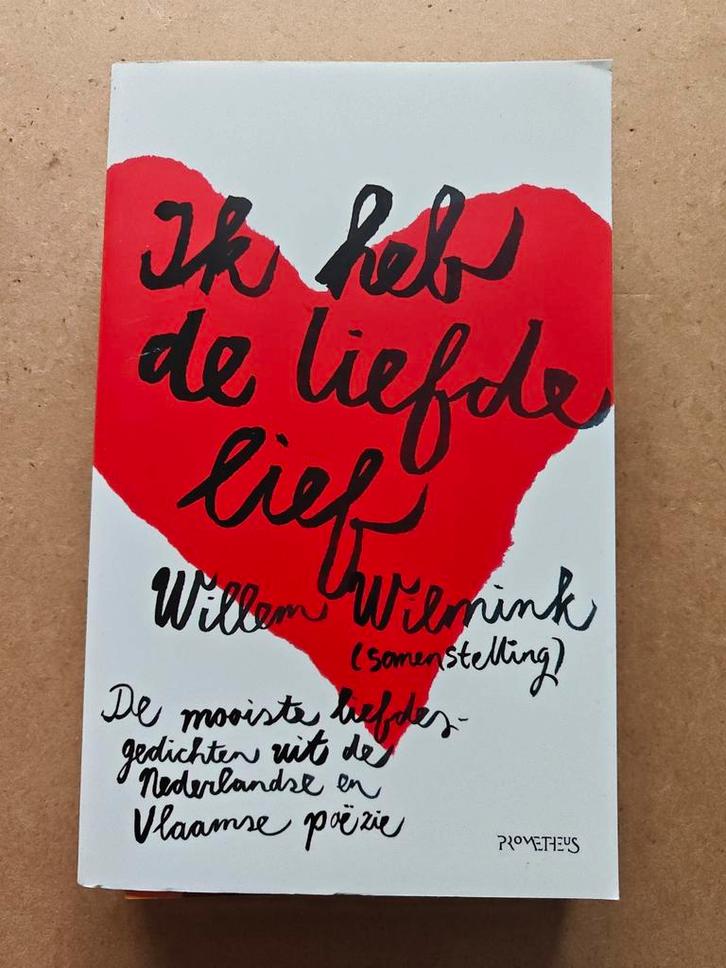 Ik heb
de liefde
lief
Willem Wilmink
(samenstelling)
De mooiste liefdes-
gedichten uit de
Nederlandse en
Vlaamse poëzie
PROMETHEUS